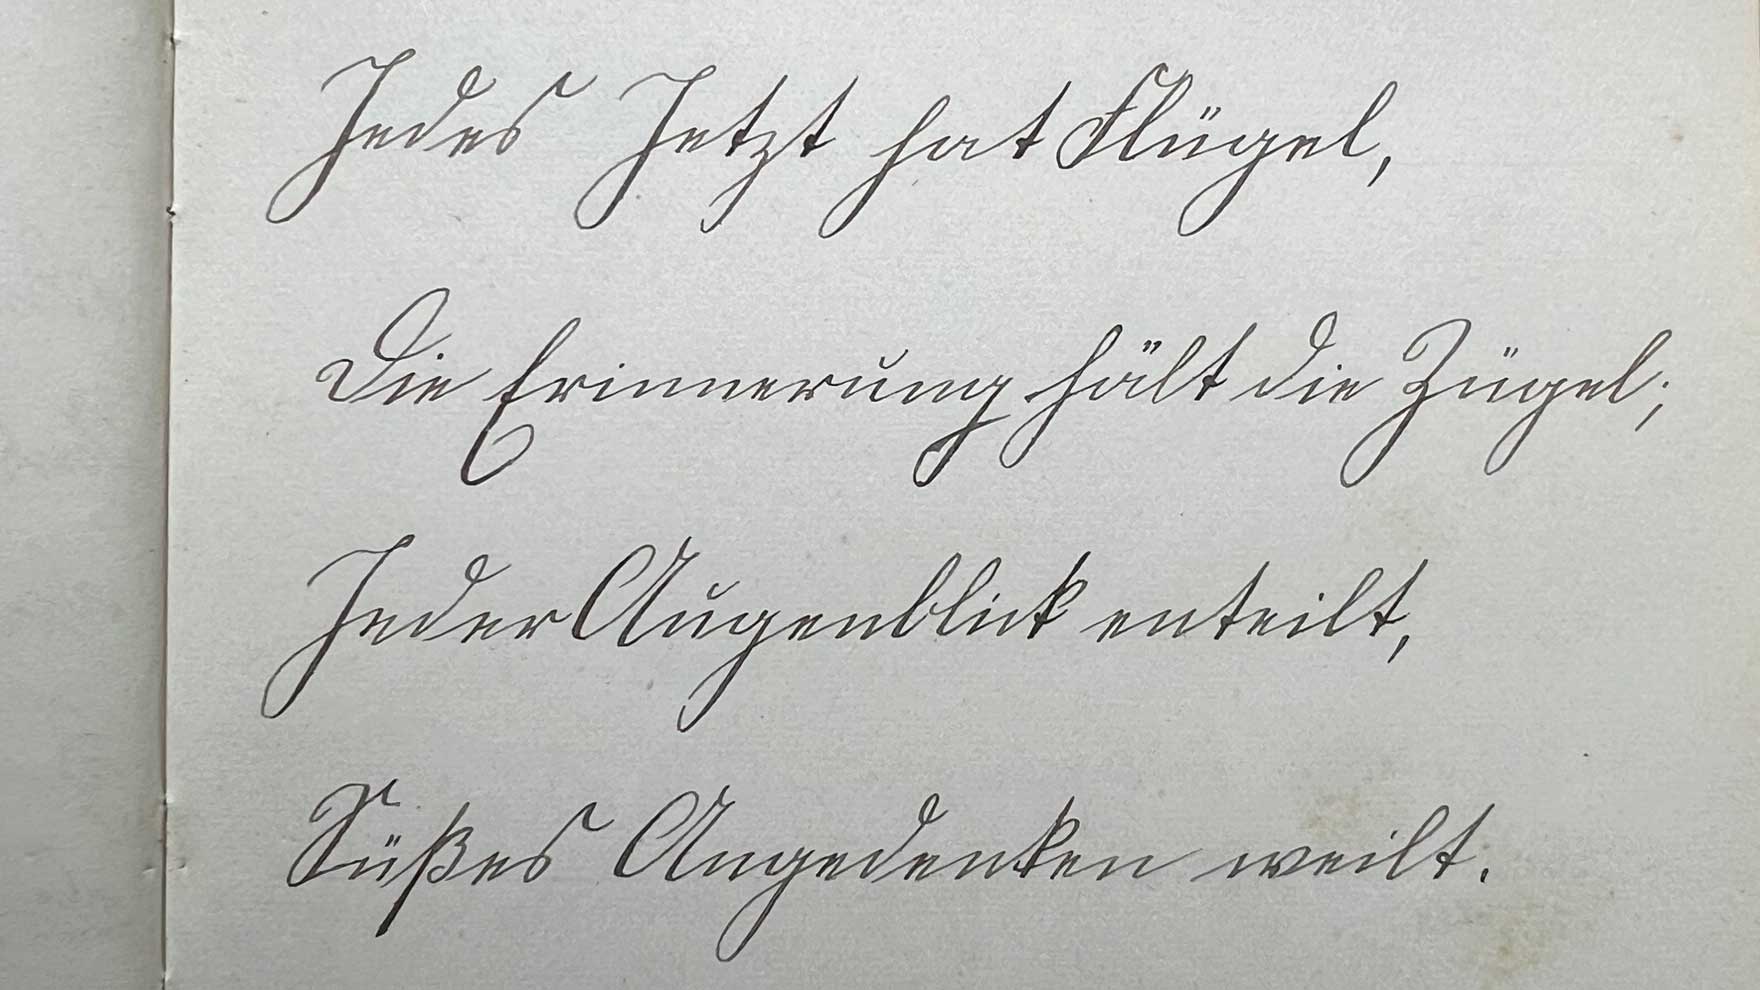 Jedes Jetzt hat Flügel,
Die Erinnerung hält die Zügel;
Jeder Augenblick enteilt,
Süßes Angedenken weilt.